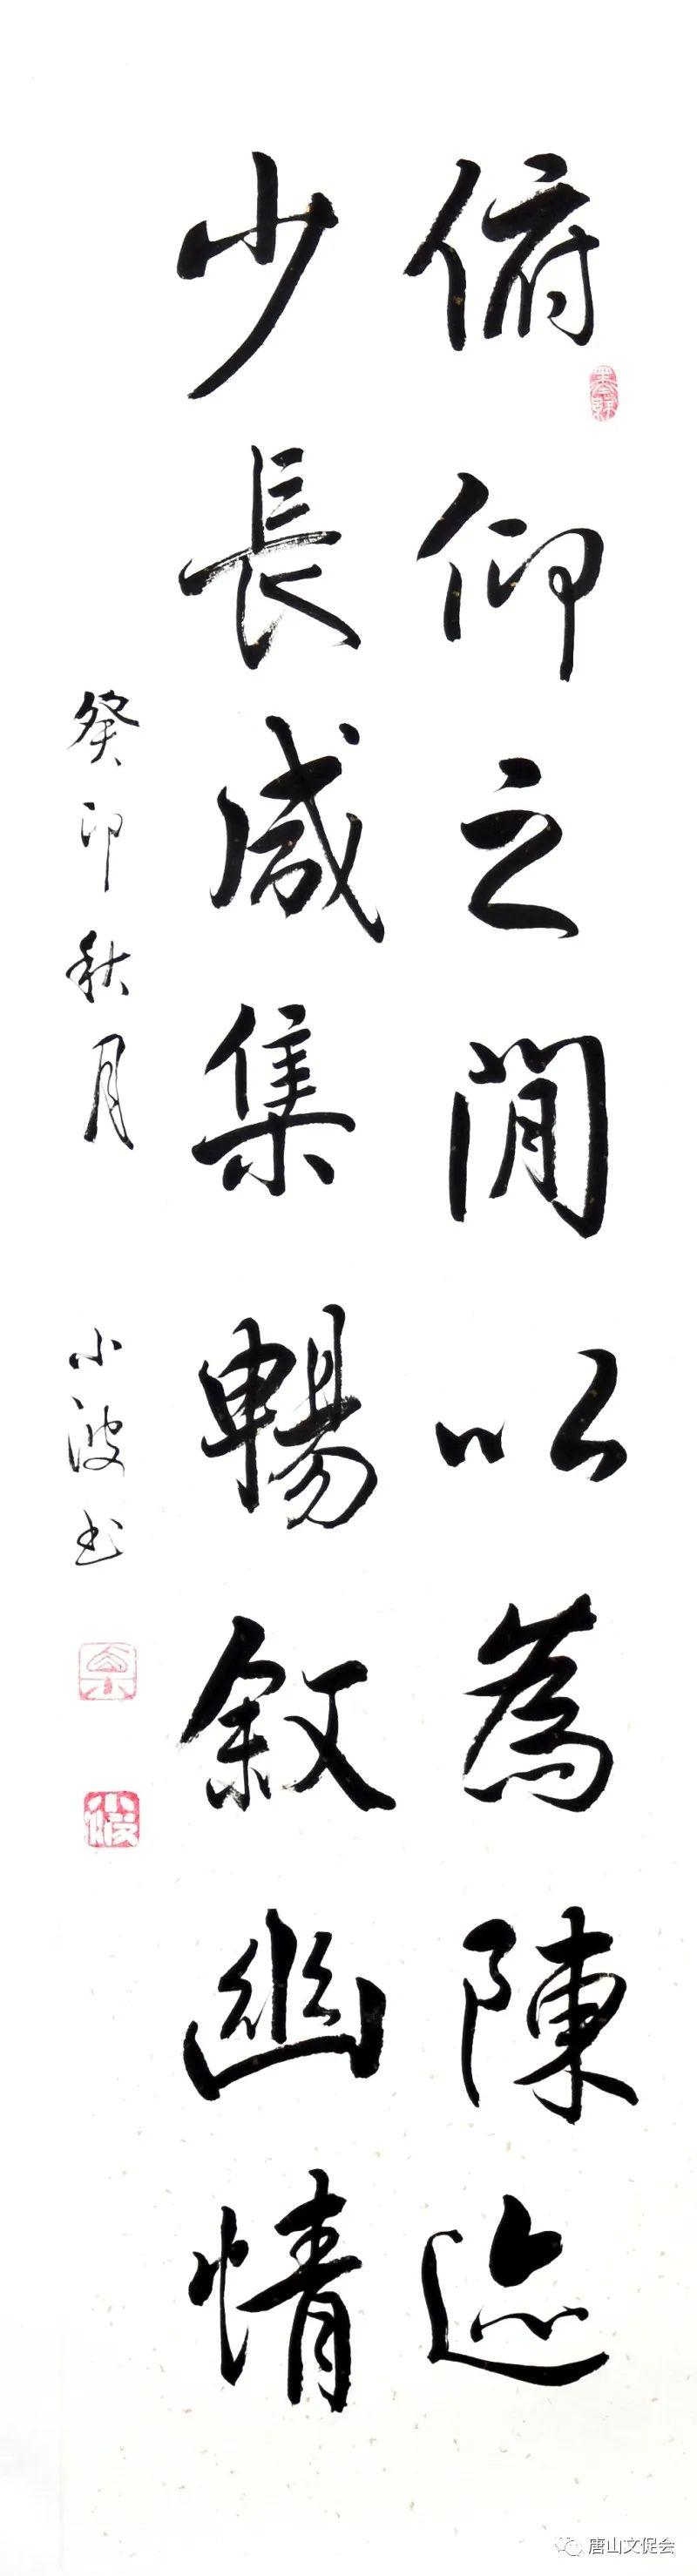 俯仰之間以為陳迹
少長咸集暢敘幽情
癸卯秋月 小波书
小波
唐山文促会